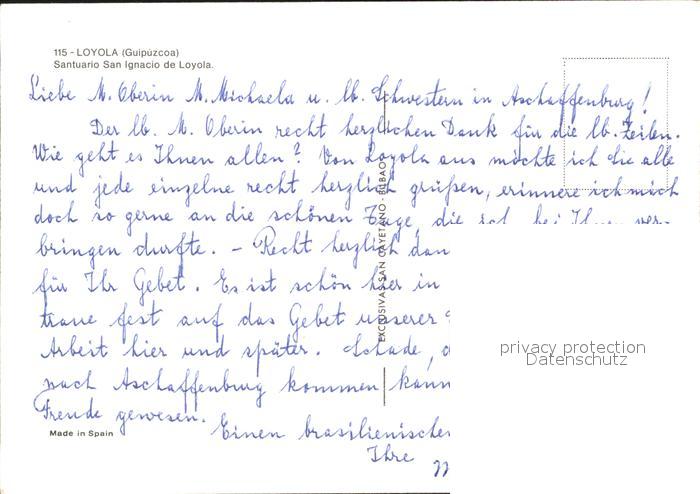 115 - LOYOLA (Guipúzcoa)
Santuario San Ignacio de Loyola.
Liebe M. Oberin M. Michaela u. lb. Schwestern in Aschaffenburg!
Der lb. M. Oberin recht herzlichen Dank für die lb. Zeilen.
Wie geht es Ihnen allen? Von Loyola aus möchte ich Sie alle
und jede einzelne recht herzlich grüßen, erinnere ich mich
doch so gerne an die schönen Tage, die ich bei Ihnen ver-
bringen durfte. - Recht herzlich
für Ihr Gebet. Es ist schön hier in
traue fest auf das Gebet unserer
Arbeit hier und später. Schade,
nach Aschaffenburg kommen kann
Freude gewesen.
Einen
Ihre
EXCLUSIVAS SAN CAYETANO - BILBAO
privacy protection
Datenschutz
Made in Spain